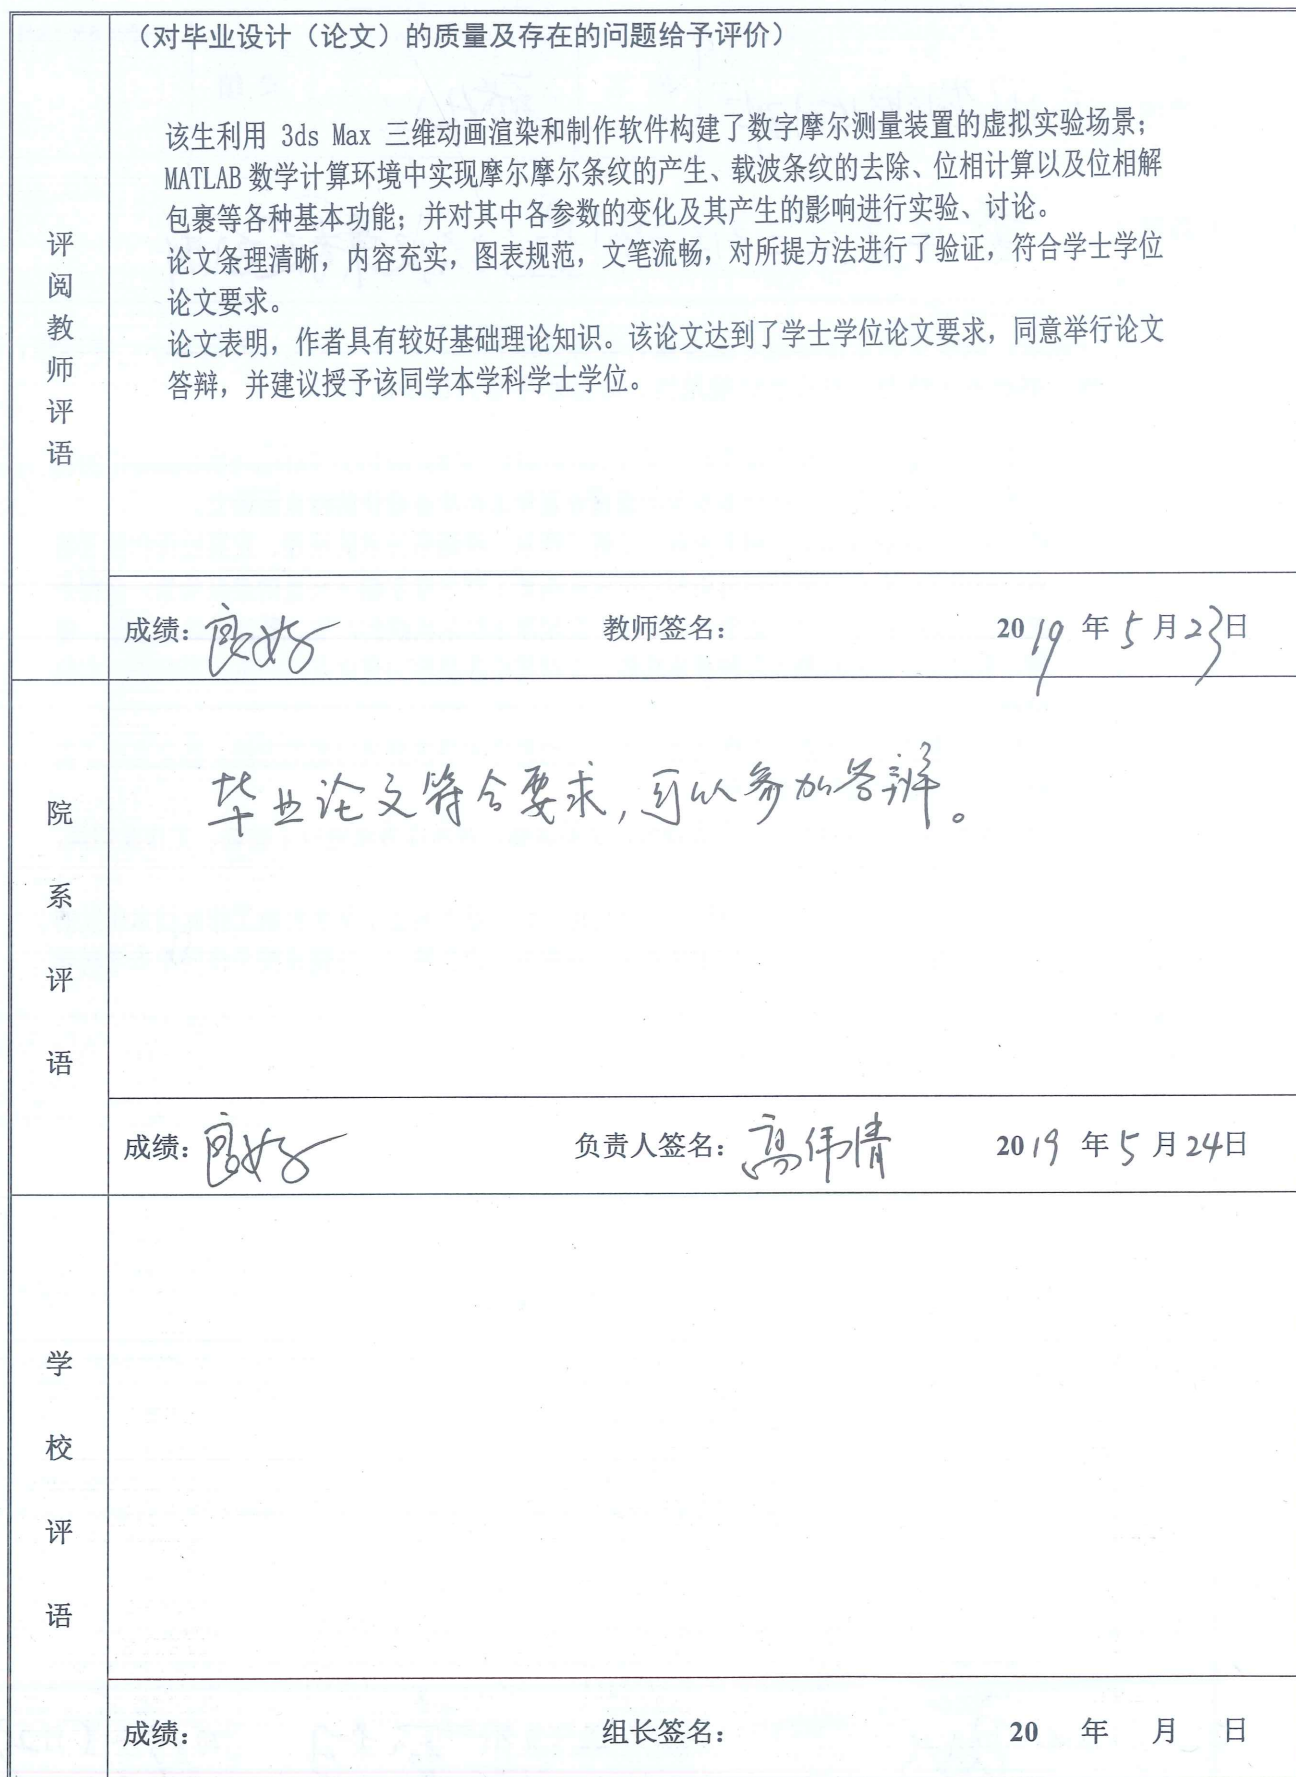 （对毕业设计（论文）的质量及存在的问题给予评价）
该生利用 3ds Max 三维动画渲染和制作软件构建了数字摩尔测量装置的虚拟实验场景；
MATLAB 数学计算环境中实现摩尔摩尔条纹的产生、载波条纹的去除、位相计算以及位相解
包裹等各种基本功能；并对其中各参数的变化及其产生的影响进行实验、讨论。
论文条理清晰，内容充实，图表规范，文笔流畅，对所提方法进行了验证，符合学士学位
论文要求。
论文表明，作者具有较好基础理论知识。该论文达到了学士学位论文要求，同意举行论文
答辩，并建议授予该同学本学科学士学位。
评阅教师评语
成绩：良好 教师签名： 2019 年 5 月 23日
毕业论文符合要求，可以参加答辩。
院系评语
成绩：良好 负责人签名：高伟清 2019 年 5 月 24日
学校评语
成绩： 组长签名： 20 年 月 日